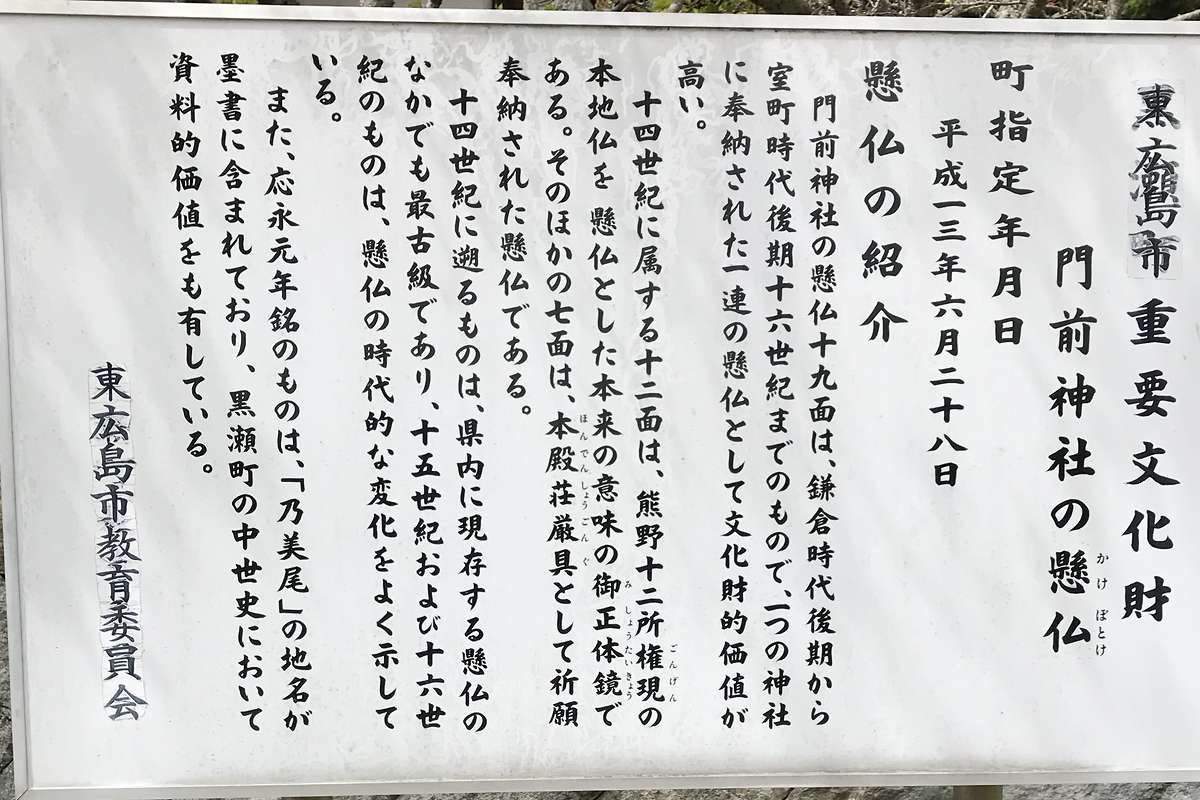 東広島市重要文化財
門前神社の懸仏
かけ ぼとけ
町指定年月日
平成一三年六月二十八日
懸仏の紹介
門前神社の懸仏十九面は、鎌倉時代後期から
室町時代後期十六世紀までのもので、一つの神社
に奉納された一連の懸仏として文化財的価値が
高い。
十四世紀に属する十二面は、熊野十二所権現の
ごんげん
本地仏を懸仏とした本来の意味の御正体鏡で
みしょうたいきょう
ある。そのほかの七面は、本殿荘厳具として祈願
ほんでんしょうごんぐ
奉納された懸仏である。
十四世紀に遡るものは、県内に現存する懸仏の
なかでも最古級であり、十五世紀および十六世
紀のものは、懸仏の時代的な変化をよく示して
いる。
また、応永元年銘のものは、「乃美尾」の地名が
墨書に含まれており、黒瀬町の中世史において
資料的価値をも有している。
東広島市教育委員会